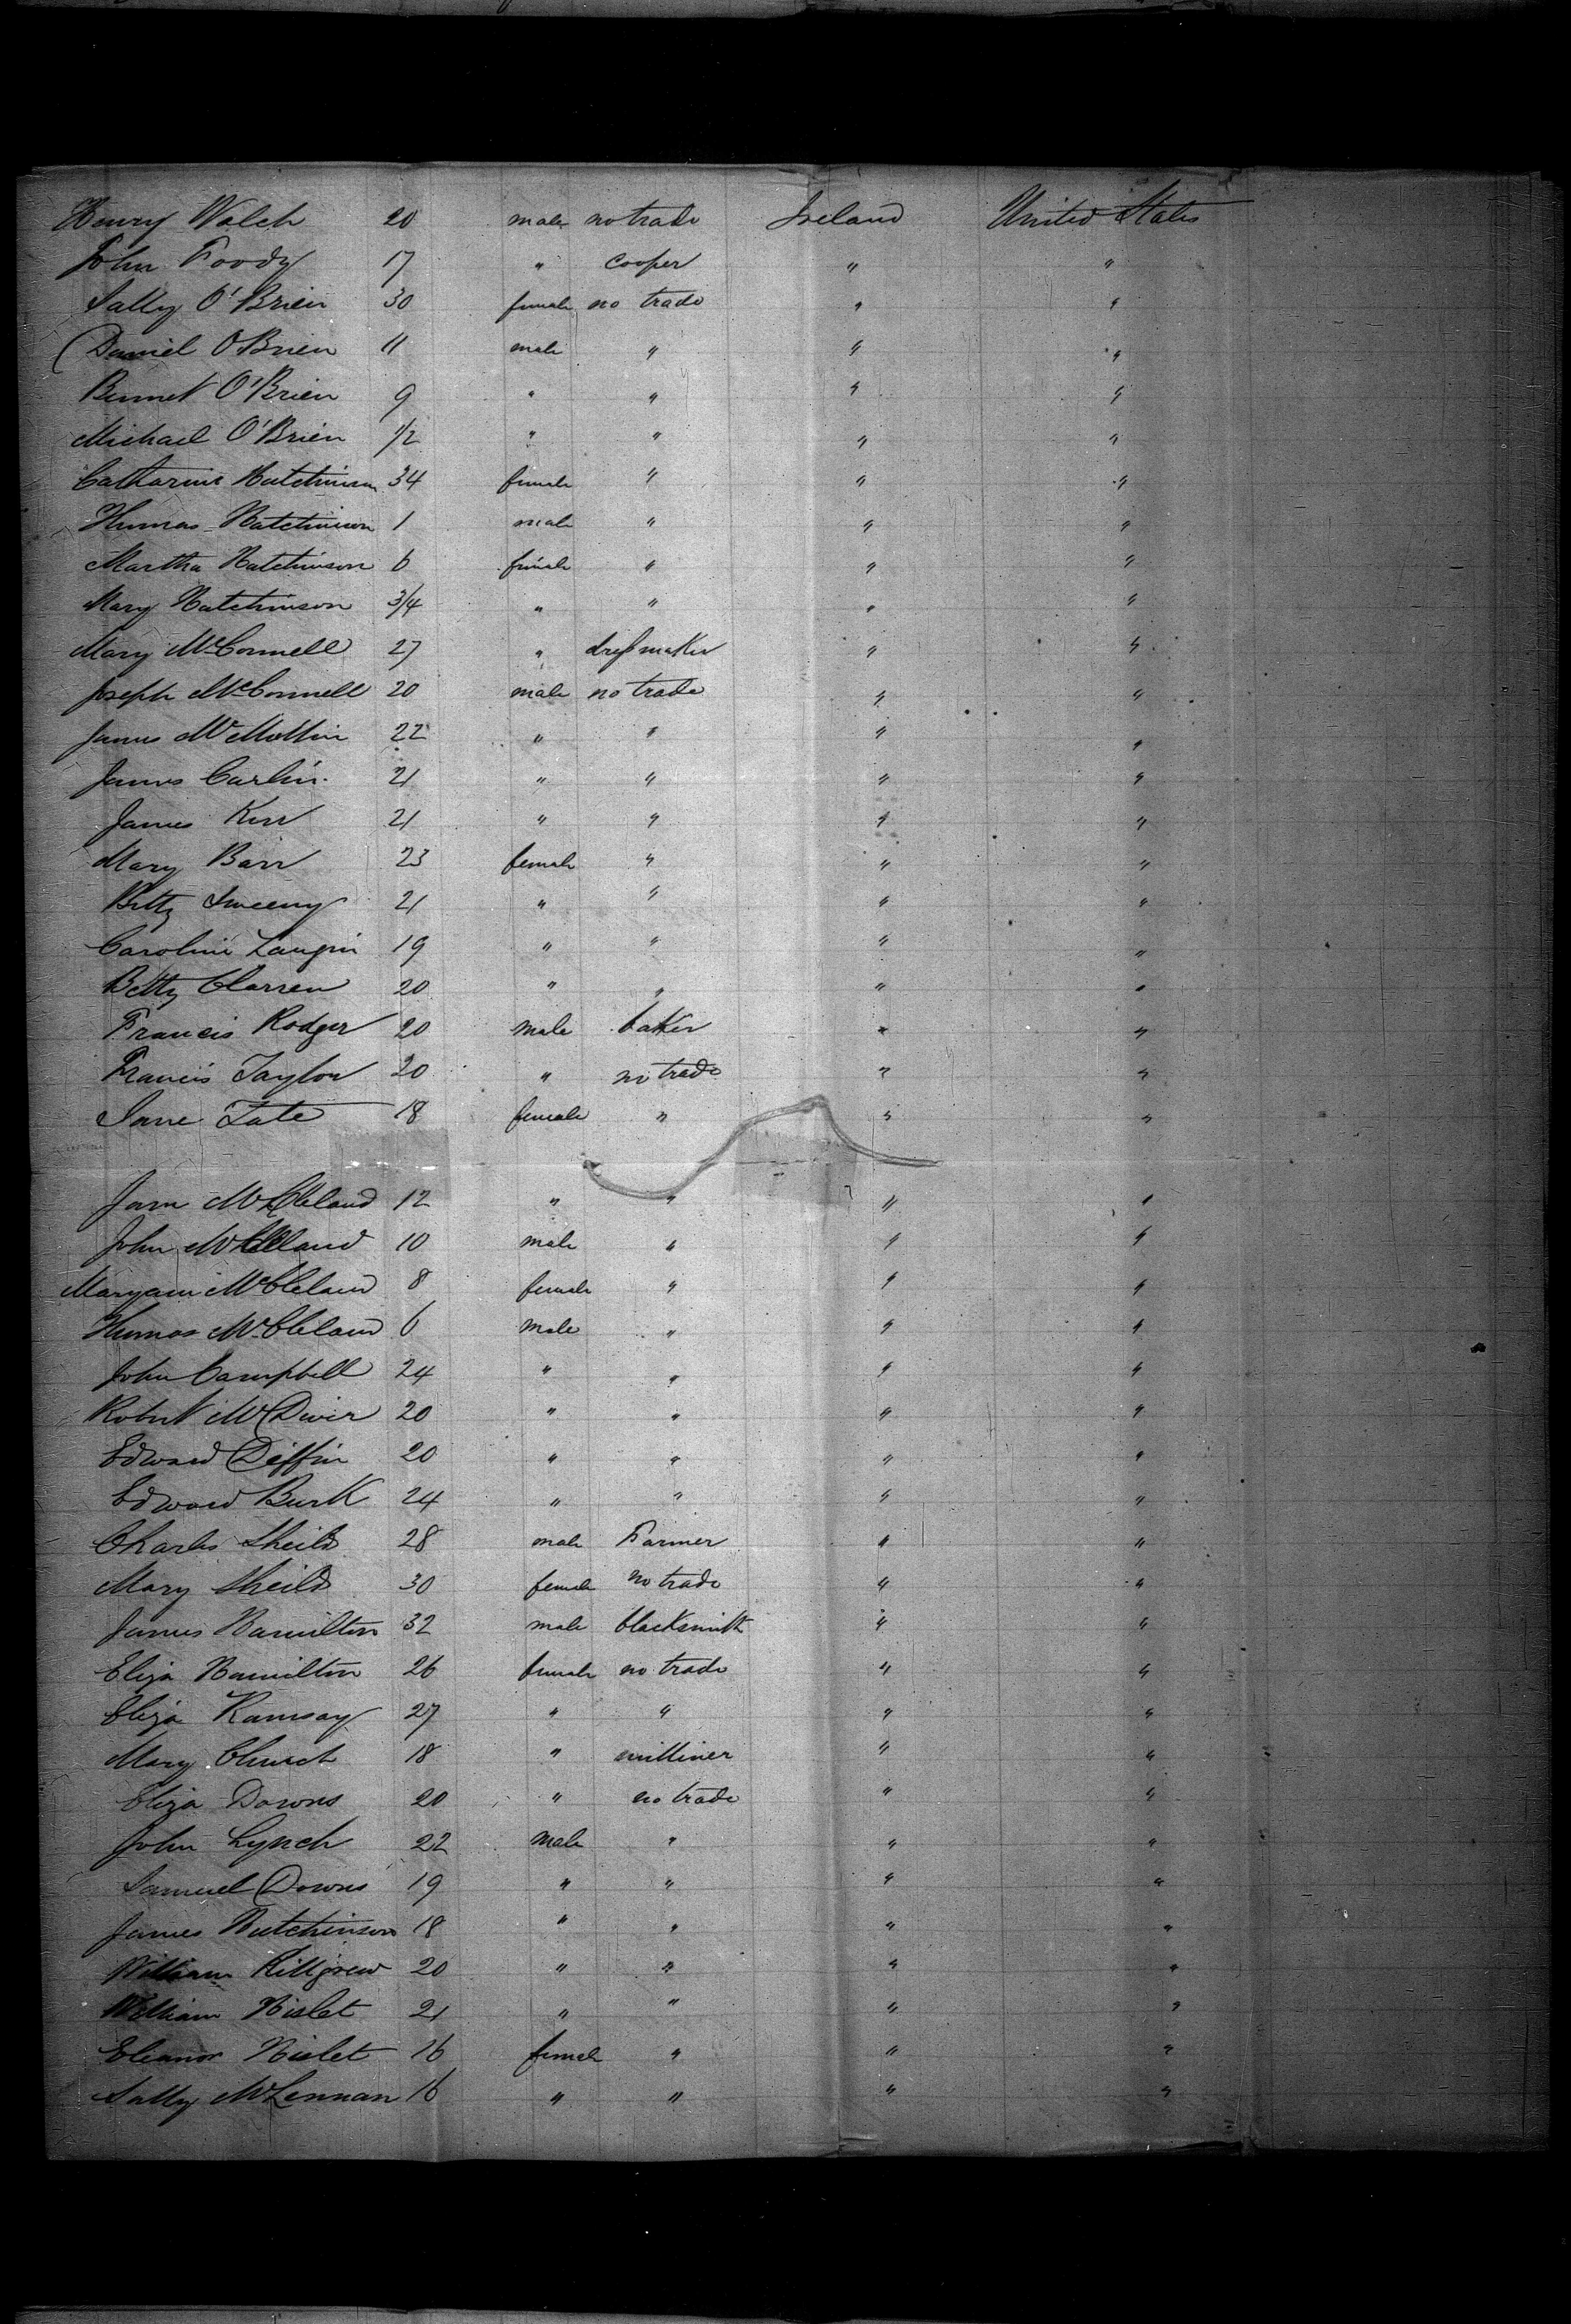 Henry Walch 20 male no trade Ireland United States
John Foody 17 " cooper " "
Sally O'Brien 30 female no trade " "
Daniel O'Brien 11 male " " "
Bennet O'Brien 9 " " " "
Michael O'Brien 1/2 " " " "
Catharine Hutchinson 34 female " " "
Thomas Hutchinson 1 male " " "
Martha Hutchinson 6 female " " "
Mary Hutchinson 3/4 " " " "
Mary McConnell 27 " dressmaker " "
Joseph McConnell 20 male no trade " "
James McMollin 22 " " " "
James Carlin 21 " " " "
James Kerr 21 " " " "
Mary Barr 23 female " " "
Betty Sweeny 21 " " " "
Caroline Laugin 19 " " " "
Betty Clarren 20 " " " "
Francis Rodger 20 male baker " "
Francis Taylor 20 " no trade " "
Jane Tate 18 female " " "
Jane McCleland 12 " " " "
John McCleland 10 male " " "
Maryann McCleland 8 female " " "
Thomas McCleland 6 male " " "
John Campbell 24 " " " "
Robert McDivir 20 " " " "
Edward Diffin 20 " " " "
Edward Burk 24 " " " "
Charles Sheild 28 male Farmer " "
Mary Sheild 30 female no trade " "
James Hamilton 32 male blacksmith " "
Eliza Hamilton 26 female no trade " "
Eliza Ramsay 27 " " " "
Mary Church 18 " milliner " "
Eliza Downs 20 " no trade " "
John Lynch 22 male " " "
Samuel Downs 19 " " " "
James Hutchinson 18 " " " "
William Killgrew 20 " " " "
William Hislet 21 " " " "
Eleanor Hislet 16 female " " "
Sally McLennan 16 " " " "